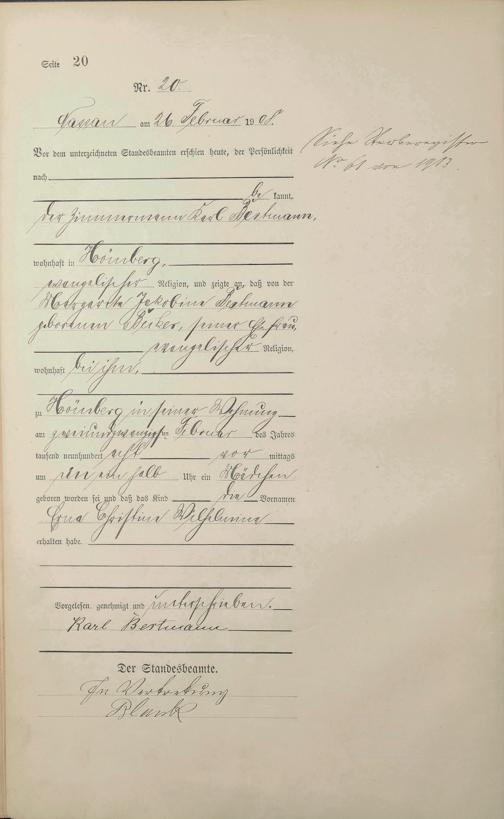 Seite 20
Nr. 20
Nassau am 26 Februar 1908.
Siehe Sterberegister
No 61 von 1913.
Vor dem unterzeichneten Standesbeamten erschien heute, der Persönlichkeit
nach
be kannt,
der Zimmermann Karl Bestmann,
wohnhaft in Hömberg,
evangelischer Religion, und zeigte an, daß von der
Margarete Jakobine Bestmann
geborenen Becker, seiner Ehefrau,
evangelischer Religion,
wohnhaft bei ihm,
zu Hömberg in seiner Wohnung
am zweiundzwanzigsten Februar des Jahres
tausend neunhundert acht vor mittags
um ein halb Uhr ein Mädchen
geboren worden sei und daß das Kind die Vornamen
Erna Christine Wilhelmine
erhalten habe.
Vorgelesen, genehmigt und unterschrieben.
Karl Bestmann
Der Standesbeamte.
In Vertretung
Blank